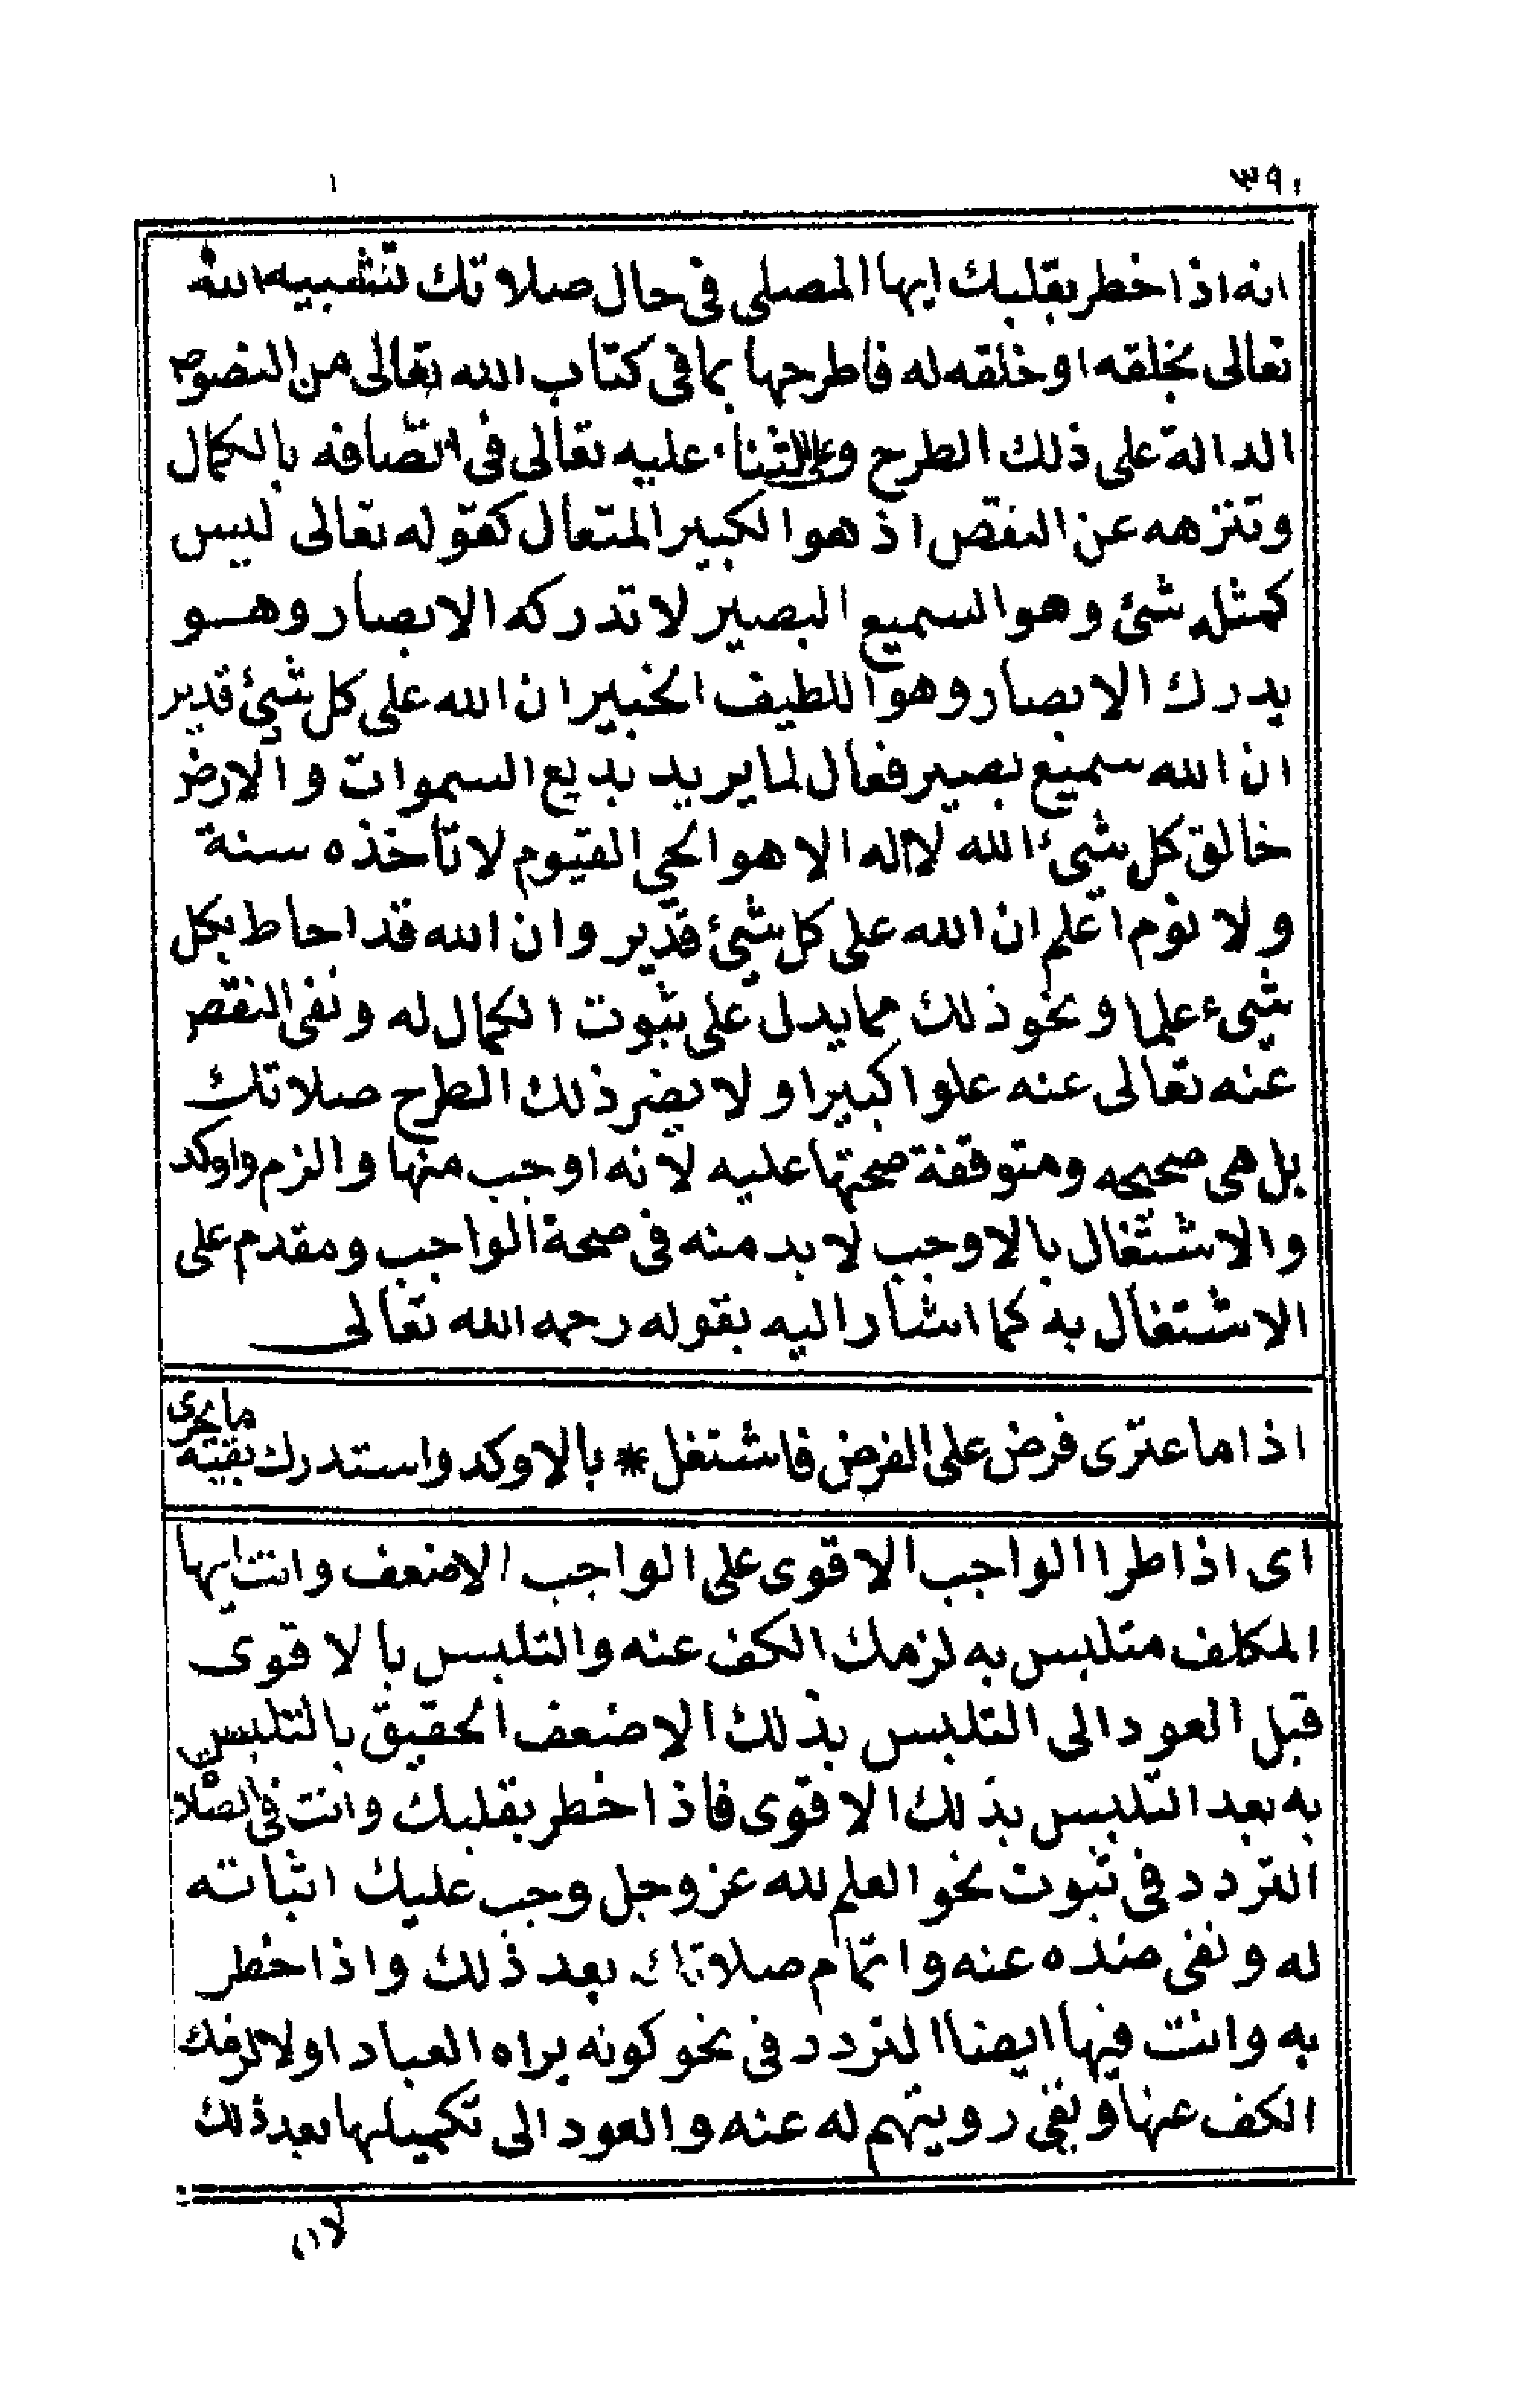 ٣٩٠
انه اذا خطر بقلبك ايها المصلى فى حال صلاتك تشبيه الله
تعالى بخلقه او خلقه له فاطرحها بما فى كتاب الله تعالى من النصوص
الدالة على ذلك الطرح وعلى الثناء عليه تعالى فى اتصافه بالكمال
وتنزهه عن النقص اذ هو الكبير المتعال كقوله تعالى ليس
كمثله شئ وهو السميع البصير لا تدركه الابصار وهو
يدرك الابصار وهو اللطيف الخبير ان الله على كل شئ قدير
ان الله سميع بصير فعال لما يريد بديع السموات والارض
خالق كل شئ الله لا اله الا هو الحي القيوم لا تأخذه سنة
ولا نوم اعلم ان الله على كل شئ قدير وان الله قد احاط بكل
شىء علما ونحو ذلك مما يدل على ثبوت الكمال له ونفى النقص
عنه تعالى عنه علوا كبيرا ولا يضر ذلك الطرح صلاتك
بل هى صحيحه ومتوقفة صحتها عليه لانه اوجب منها والزم واوكد
والاشتغال بالاوجب لا بد منه فى صحة الواجب ومقدم على
الاشتغال به كما اشار اليه بقوله رحمه الله تعالى
اذا ما عترى فرض على الفرض فاشتغل * بالاوكد واستدرك بقيته ما يحرى
اى اذا طرا الواجب الاقوى على الواجب الاضعف وانت ايها
المكلف متلبس به لزمك الكف عنه والتلبس بالاقوى
قبل العود الى التلبس بذلك الاضعف الحقيق بالتلبس
به بعد التلبس بذلك الاقوى فاذا خطر بقلبك وانت فى الصلاة
التردد فى ثبوت نحو العلم لله عز وجل وجب عليك اثباته
له ونفى ضده عنه واتمام صلاتك بعد ذلك واذا خطر
به وانت فيها ايضا التردد فى نحو كونه يراه العباد اولا لزمك
الكف عنها ونفى رويتهم له عنه والعود الى تكميلها بعد ذلك